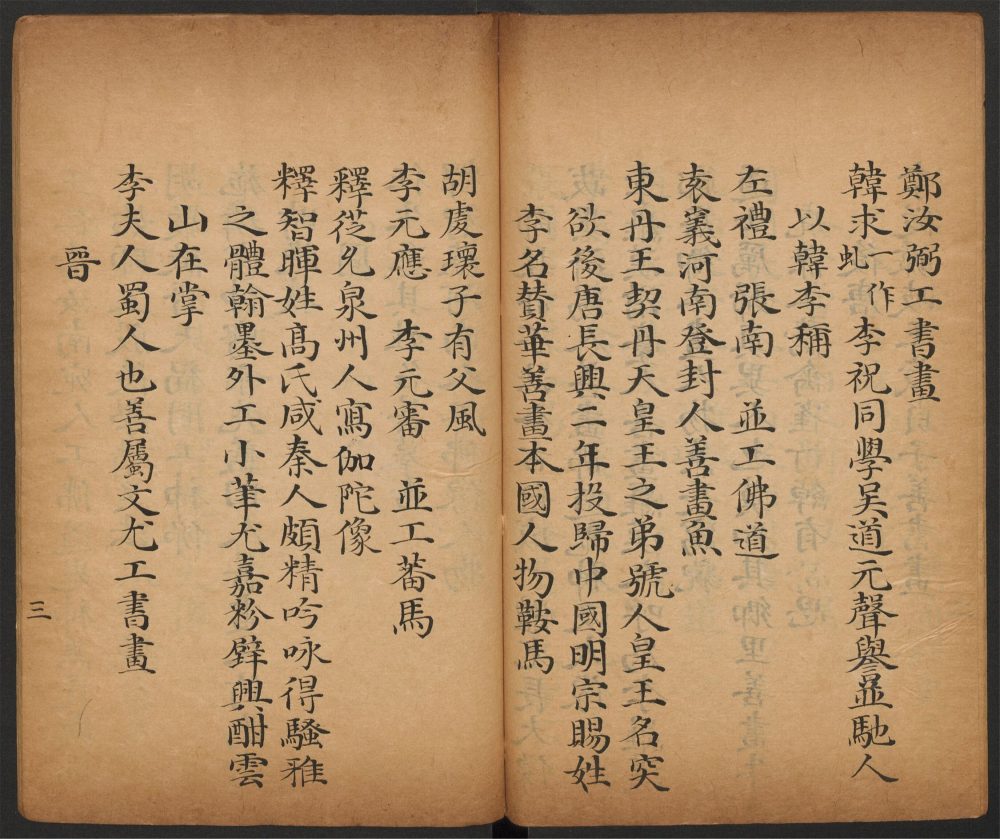 鄭汝弼工書畫
韓求一作虬李祝同學吴道元聲譽並馳人
以韓李稱
左禮 張南 並工佛道
袁嶬河南登封人善畫魚
東丹王契丹天皇王之弟號人皇王名突
欲後唐長興二年投歸中國明宗賜姓
李名賛華善畫本國人物鞍馬
胡虔瓌子有父風
李元應 李元審 並工蕃馬
釋從允泉州人寫伽陀像
釋智暉姓髙氏咸秦人頗精吟咏得騷雅
之體翰墨外工小筆尤嘉粉壁興酣雲
山在掌
李夫人蜀人也善屬文尤工書畫
晉
三